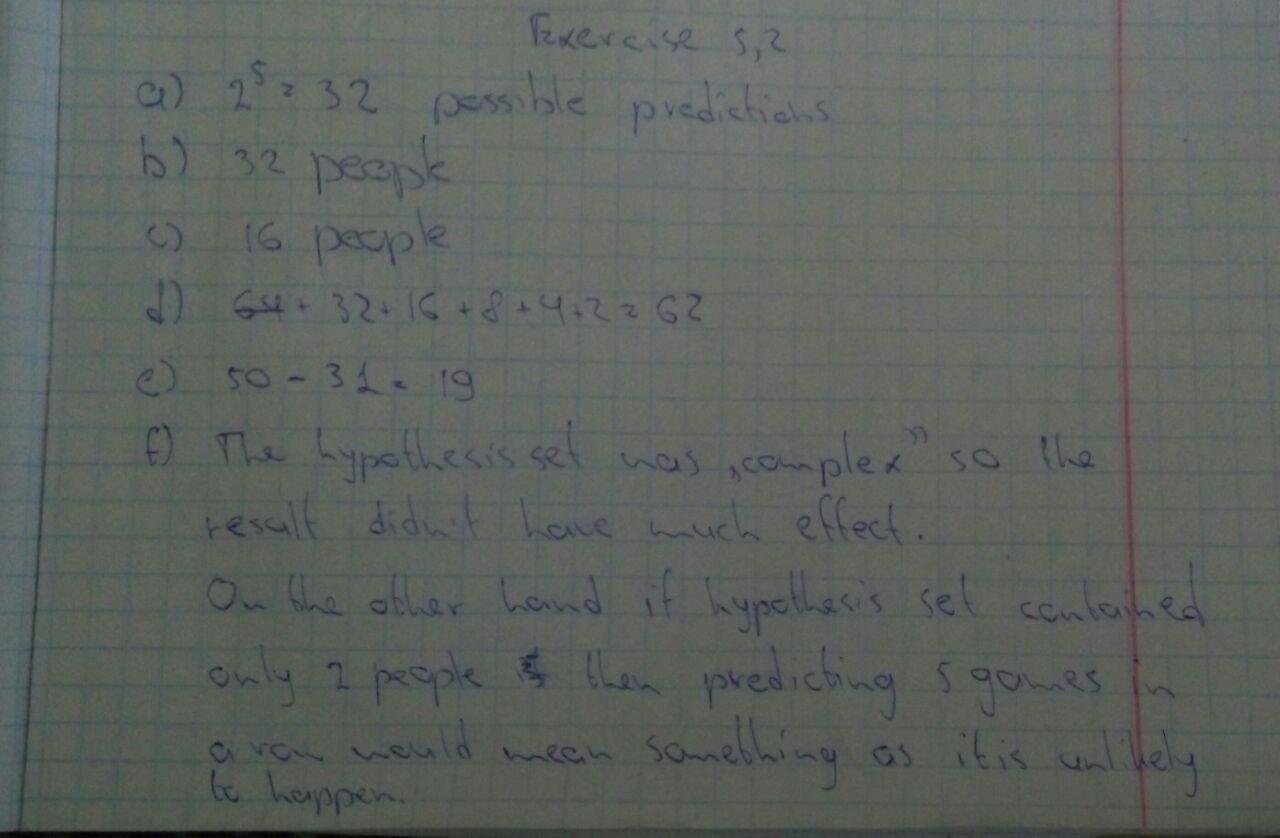 Exercise 5,2
a) 2⁵ = 32 possible predictions
b) 32 people
c) 16 people
d) 64 + 32 + 16 + 8 + 4 + 2 = 62
e) 50 - 31 = 19
f) The hypothesis set was „complex” so the
result didn't have much effect.
On the other hand if hypothesis set contained
only 2 people then predicting 5 games in
a row would mean something as it is unlikely
to happen.